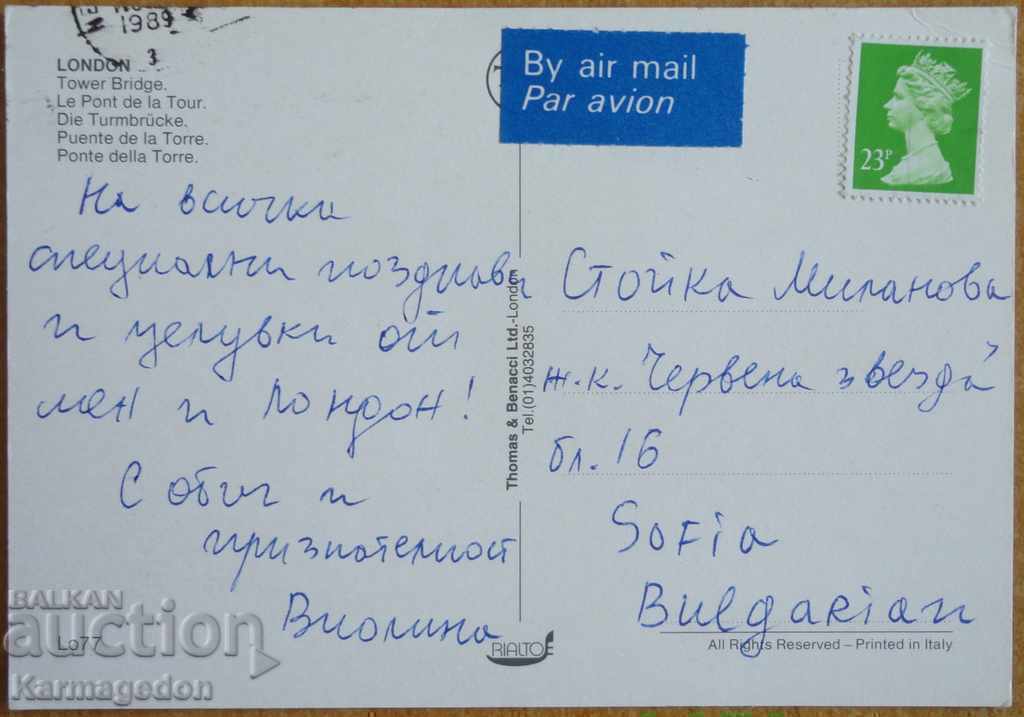 1989
3
LONDON
Tower Bridge.
Le Pont de la Tour.
Die Turmbrücke.
Puente de la Torre.
Ponte della Torre.
By air mail
Par avion
23P
На всички
специални поздрави
и целувки от
мен и Лондон!
С обич и
признателност
Виолина
Thomas & Benacci Ltd.-London
Tel.(01)4032835
Стойка Миланова
ж.к. "Червена звезда"
бл. 16
Sofia
Bulgarian
Lo77
RIALTO
All Rights Reserved – Printed in Italy
BALKAN
auction
Karmagedon